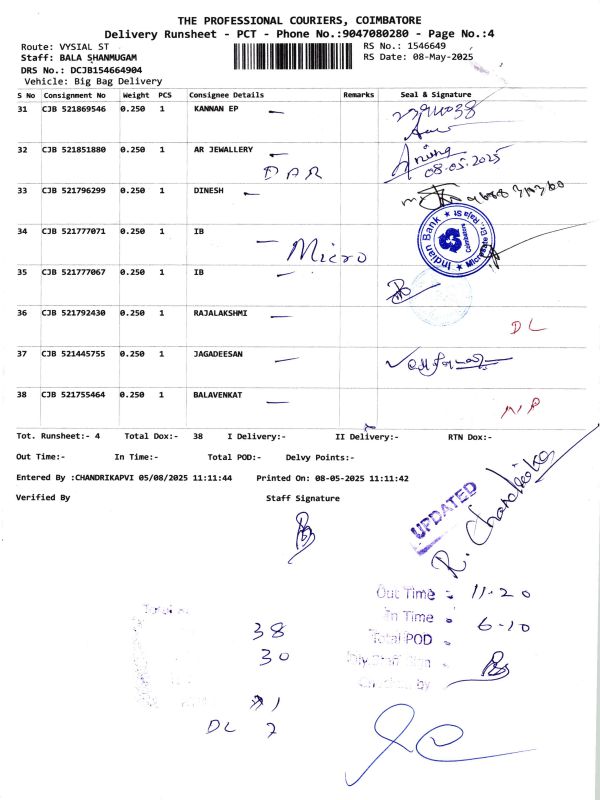 THE PROFESSIONAL COURIERS, COIMBATORE
Delivery Runsheet - PCT - Phone No.:9047080280 - Page No.:4
Route: VYSIAL ST
RS No.: 1546649
Staff: BALA SHANMUGAM
RS Date: 08-May-2025
DRS No.: DCJB154664904
Vehicle: Big Bag Delivery
S No Consignment No Weight PCS Consignee Details Remarks Seal & Signature
31 CJB 521869546 0.250 1 KANNAN EP
32 CJB 521851880 0.250 1 AR JEWALLERY
DAR
08.05.2025
33 CJB 521796299 0.250 1 DINESH
34 CJB 521777071 0.250 1 IB
Micro
Indian Bank
Coimbatore
35 CJB 521777067 0.250 1 IB
36 CJB 521792430 0.250 1 RAJALAKSHMI
DL
37 CJB 521445755 0.250 1 JAGADEESAN
38 CJB 521755464 0.250 1 BALAVENKAT
Tot. Runsheet:- 4 Total Dox:- 38 I Delivery:- II Delivery:- RTN Dox:-
Out Time:- In Time:- Total POD:- Delvy Points:-
Entered By :CHANDRIKAPVI 05/08/2025 11:11:44 Printed On: 08-05-2025 11:11:42
Verified By Staff Signature
UPDATED
R. Chandrika
Out Time : 11.20
In Time : 6-10
Total POD
38
30
DL 7